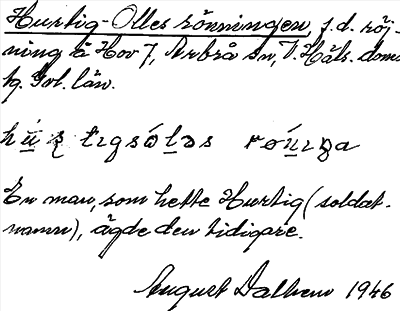 Hurtig-Olles rönningen, f.d. röj-
ning å Hov 7, Arbrå sn, V. Häls. doms-
tg. Gvl. län.
En man, som hette Hurtig (soldat-
namn), ägde den tidigare.
August Dalhem 1946